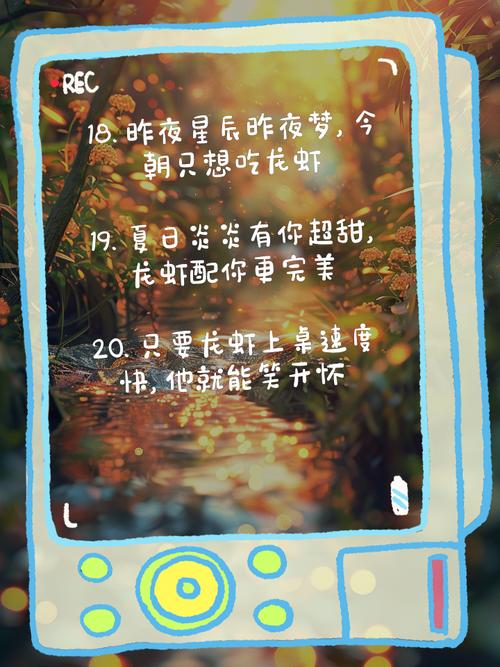 REC
18. 昨夜星辰昨夜梦, 今
朝只想吃龙虾
19. 夏日炎炎有你超甜,
龙虾配你更完美
20. 只要龙虾上桌速度
快, 他就能笑开怀